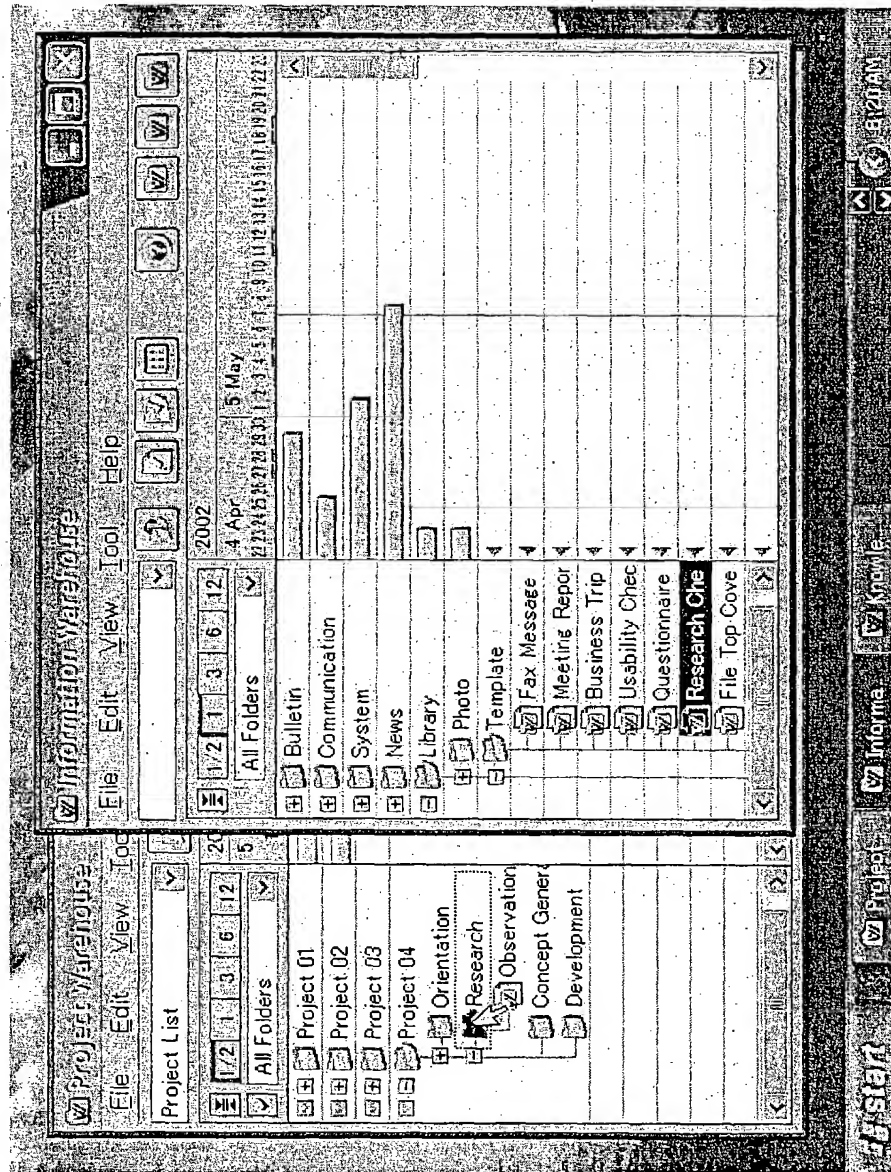 Project Warehouse
File Edit View Too
Project List
1/2 1 3 6 12
20
All Folders
5
Project 01
Project 02
Project 03
Project 04
Orientation
Research
Observation
Concept Genera
Development
Information Warehouse
File Edit View Tool Help
1/2 1 3 6 12
2002
All Folders
4 Apr 5 May
22 23 24 25 26 27 28 29 30 1 2 3 4 5 6 7 8 9 10 11 12 13 14 15 16 17 18 19 20 21 22 23
Bulletin
Communication
System
News
Library
Photo
Template
Fax Message
Meeting Repor
Business Trip
Usability Chec
Questionnaire
Research Che
File Top Cove
Start
Project...
Informa...
Knowle...
8:20 AM